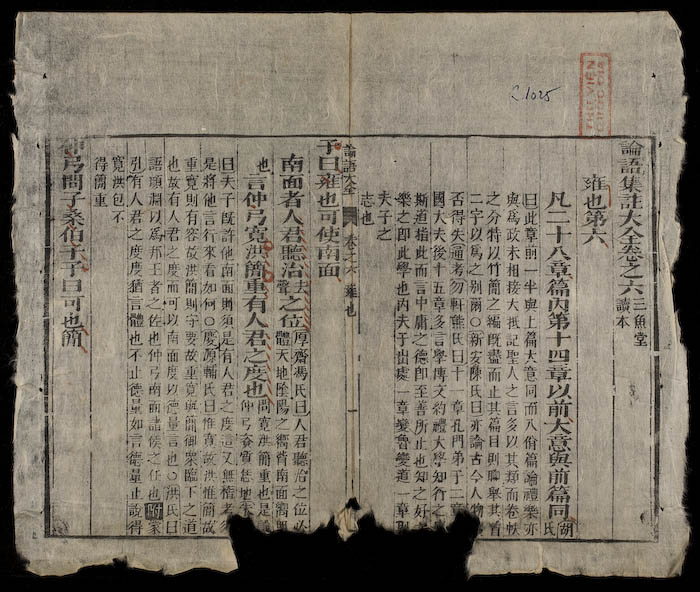 論語集註大全卷之六 三魚堂讀本
雍也第六
凡二十八章篇內第十四章以前大意與前篇同 胡氏
曰此章前一半與上篇大意同而八佾篇論禮樂亦
與爲政末相接大抵記聖人之言多以其類而卷帙
之分特以竹簡之編旣盡而止其篇目則聊舉其首
二字以爲之別爾○新安陳氏曰亦論古今人物
否得失通考勿軒熊氏曰十一章孔門弟子二章
國大夫後十五章多言學傳文約禮大學知行之
斯道指此而言中庸之德卽至善所止也知之好
樂之卽此學也內夫子出處一章變魯變道一章則
夫子之
志也
論語大全 卷之六 雍也
子曰雍也可使南面
南面者人君聽治去聲之位 厚齋馮氏曰人君聽治之位必體天地陰陽之嚮背南面嚮明
也言仲弓寬洪簡重有人君之度也 問寬洪簡重也是仲弓資質恁地朱
曰夫子旣許他南面則須是有人君之度這又無稽考須
是將他言行來看如何○慶源輔氏曰惟寬故洪惟簡故
重寬則有容故洪簡則守要故重寬與簡御衆臨下之道
也故有人君之度而可以南面度以德量言也○洪氏曰
語顏淵以爲邦王者之佐也仲弓南面諸侯之任也 附蒙
引有人君之度度猶言體也不止德量如言德量止說得
寬洪包不
得簡重
仲弓問子桑伯子子曰可也簡
C.1025